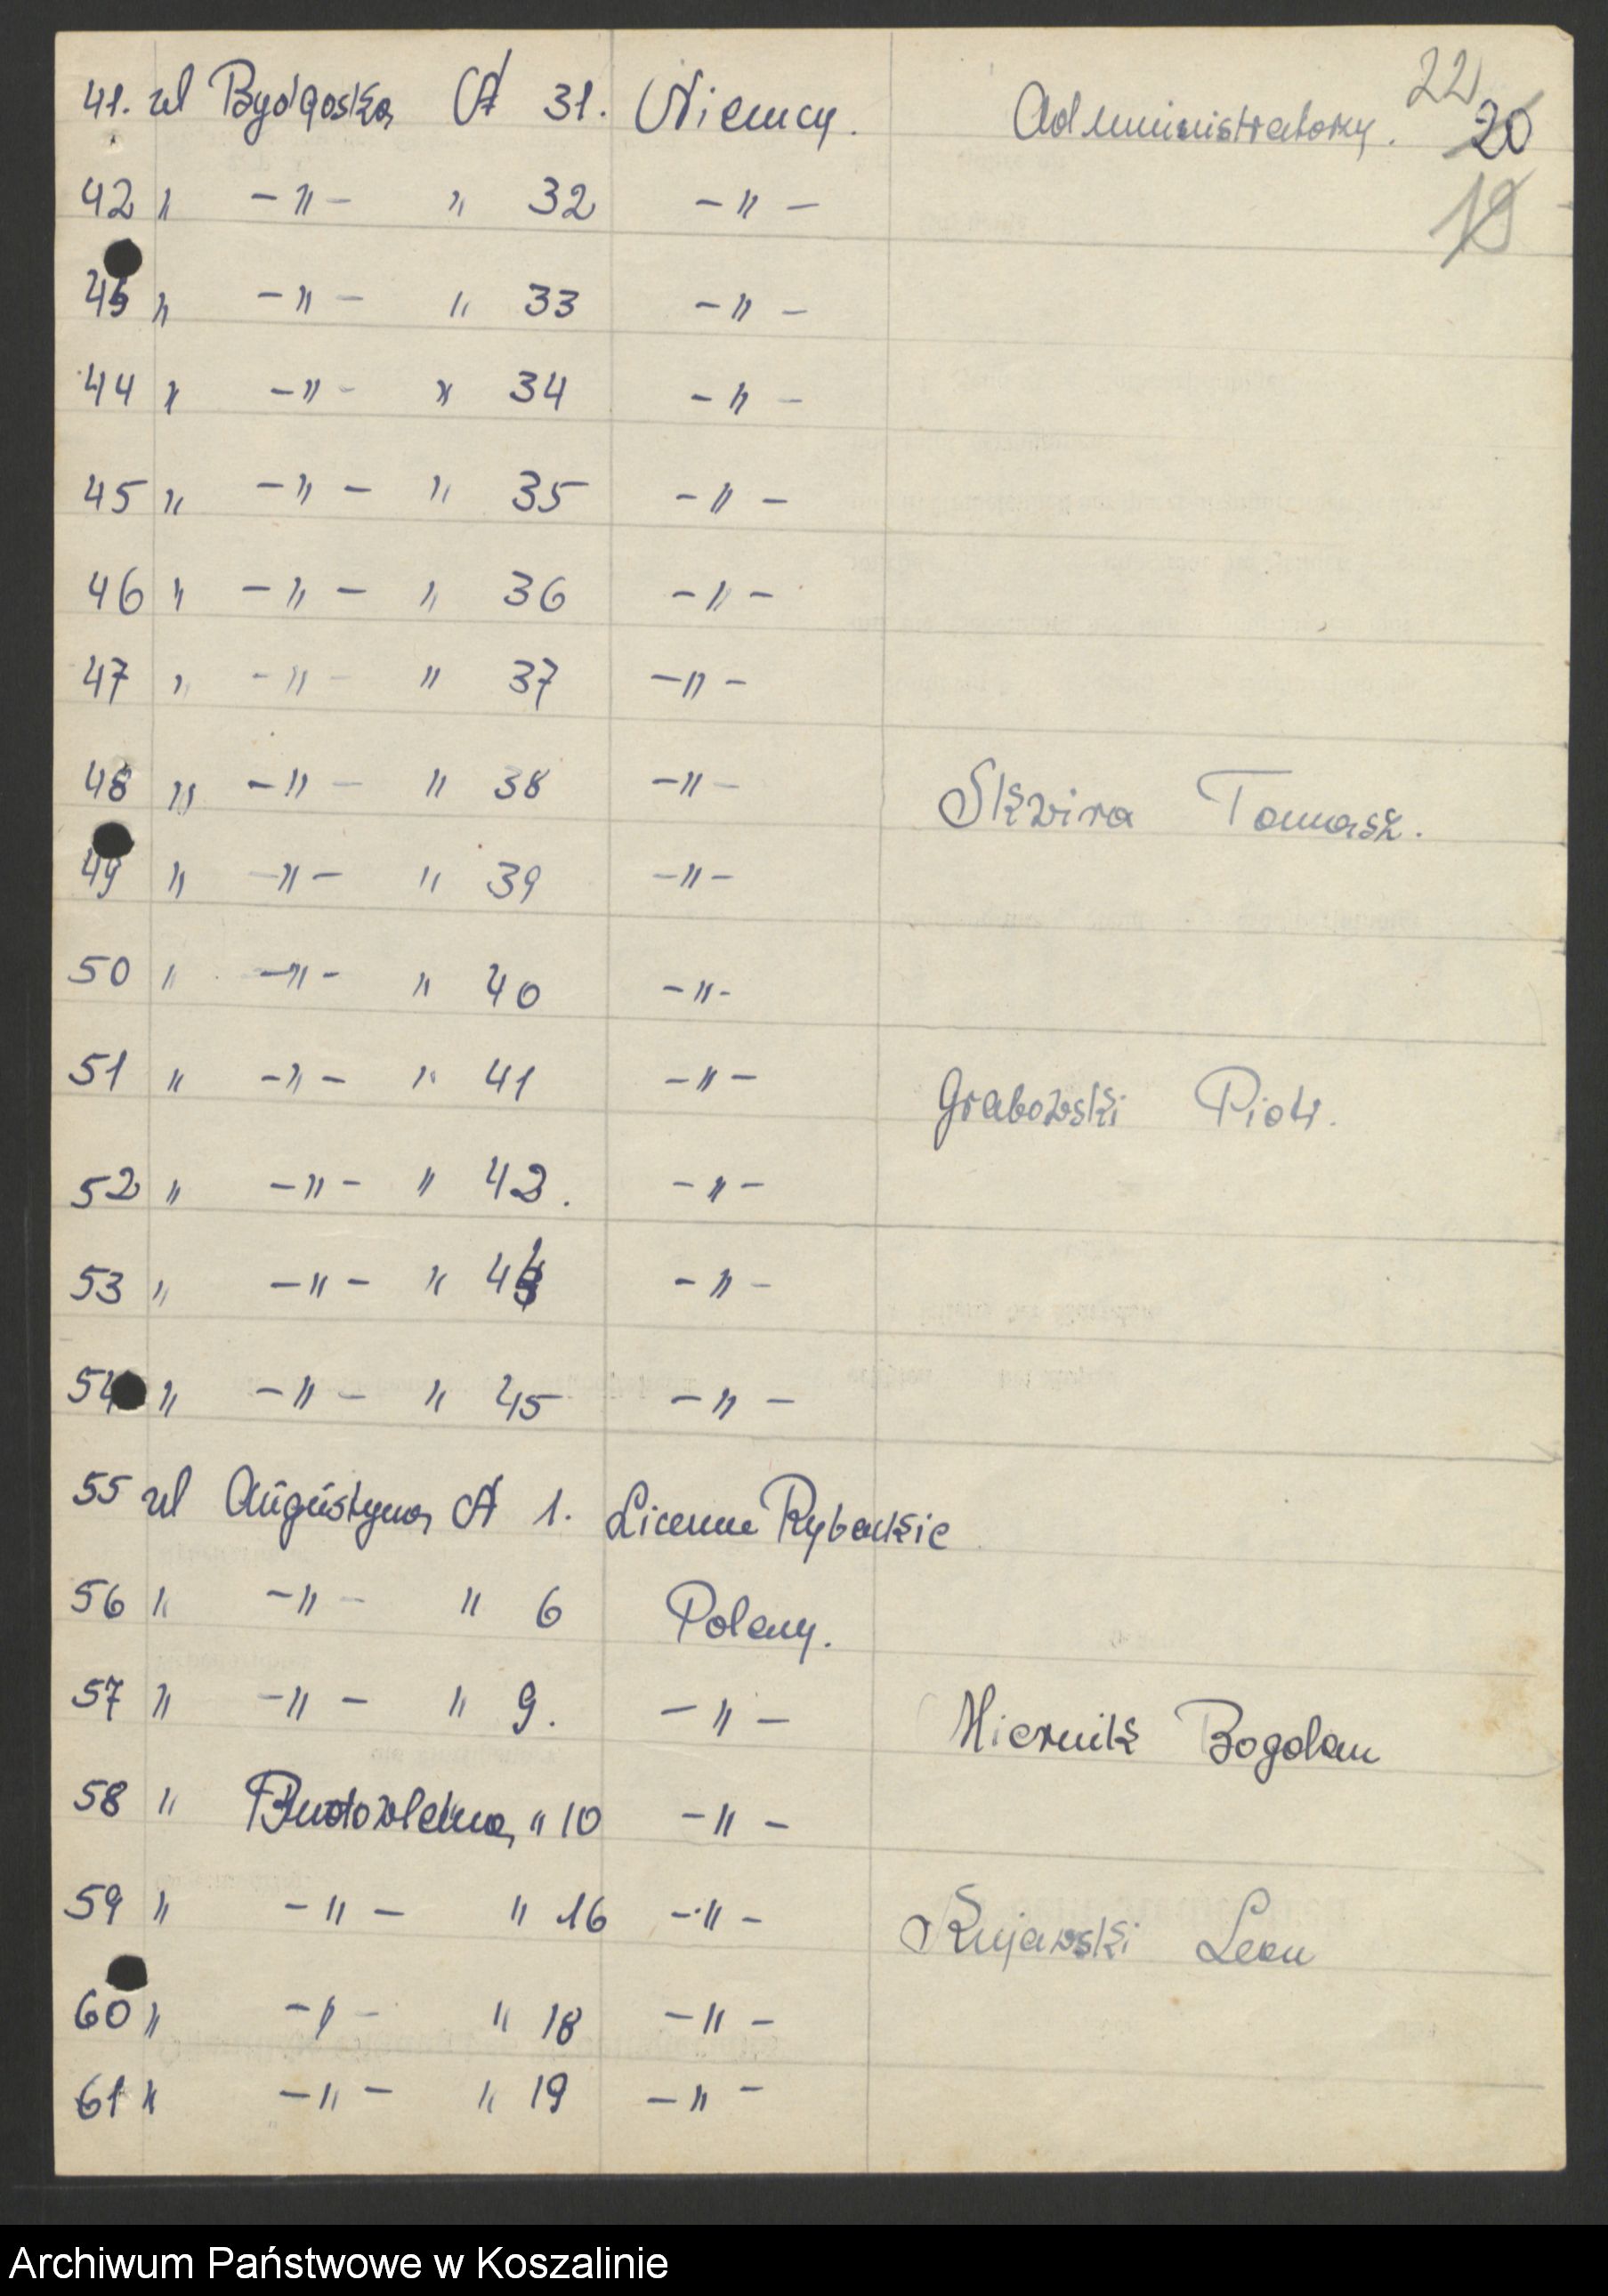 22
41. ul Bydgoska № 31. Niemcy. Administratorzy. 20
19
42 " -"- " 32 -"-
43 " -"- " 33 -"-
44 " -"- " 34 -"-
45 " -"- " 35 -"-
46 " -"- " 36 -"-
47 " -"- " 37 -"-
48 " -"- " 38 -"- Skwira Tomasz.
49 " -"- " 39 -"-
50 " -"- " 40 -"-
51 " -"- " 41 -"- Grabowski Piotr.
52 " -"- " 42. -"-
53 " -"- " -"-
54 " -"- " 45 -"-
55 ul Augustyna № 1. Liceum Rybackie
56 " -"- " 6 Polacy.
57 " -"- " 9. -"- Miernik Bogdan
58 " Budowlana " 10 -"-
59 " -"- " 16 -"- Kujawski Leon
60 " -"- " 18 -"-
61 " -"- " 19 -"-
Archiwum Państwowe w Koszalinie